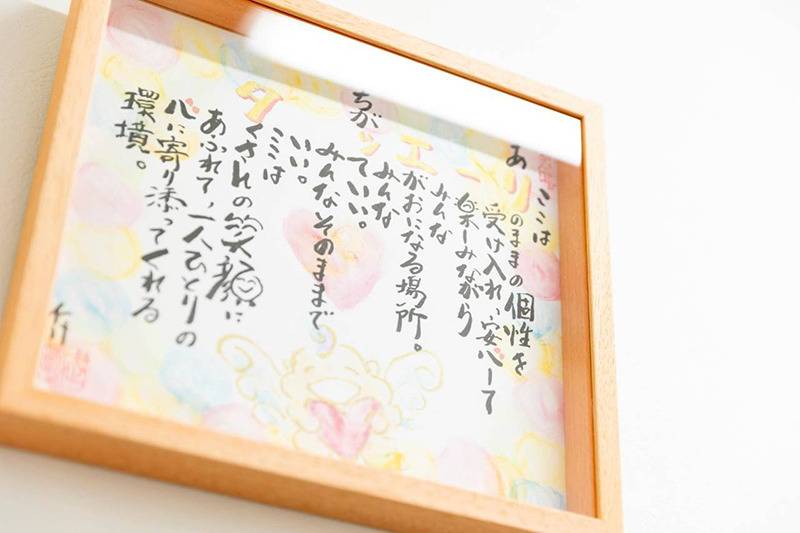 ここは
あリのままの個性を
受け入れ、安心して
ー楽しみながら
みんな
エがおになる場所。
みんな
ちがッていい。
みんなそのままで
いい。
ここは
タくさんの笑顔に
あふれて、一人ひとりの
心に寄り添ってくれる
環境。